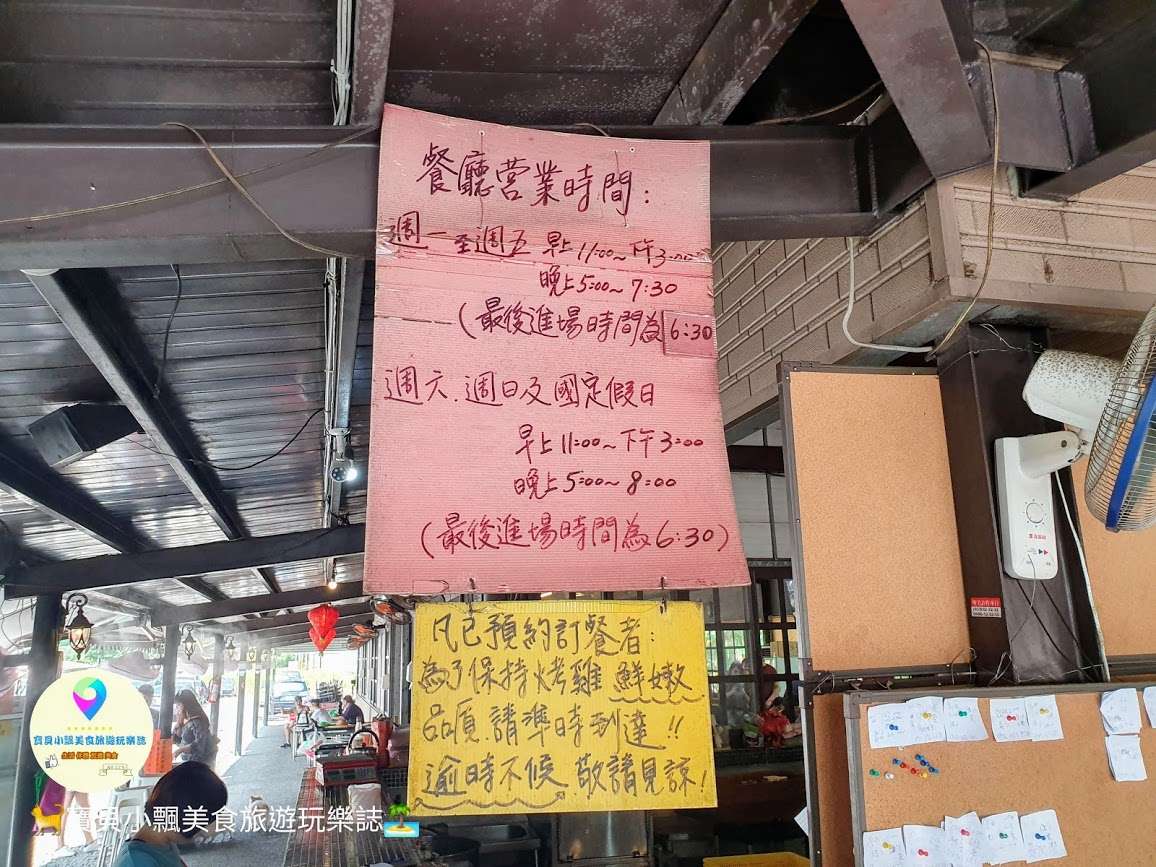 餐廳營業時間:
週一至週五 早上11:00~下午3:00
晚上5:00~7:30
(最後進場時間為6:30
週六.週日及國定假日
早上11:00~下午3:00
晚上5:00~8:00
(最後進場時間為6:30)
凡已預約訂餐者:
為了保持烤雞鮮嫩
品質.請準時到達!!
逾時不候 敬請見諒!
寶貝小飄美食旅遊玩樂誌
寶貝小飄美食旅遊玩樂誌